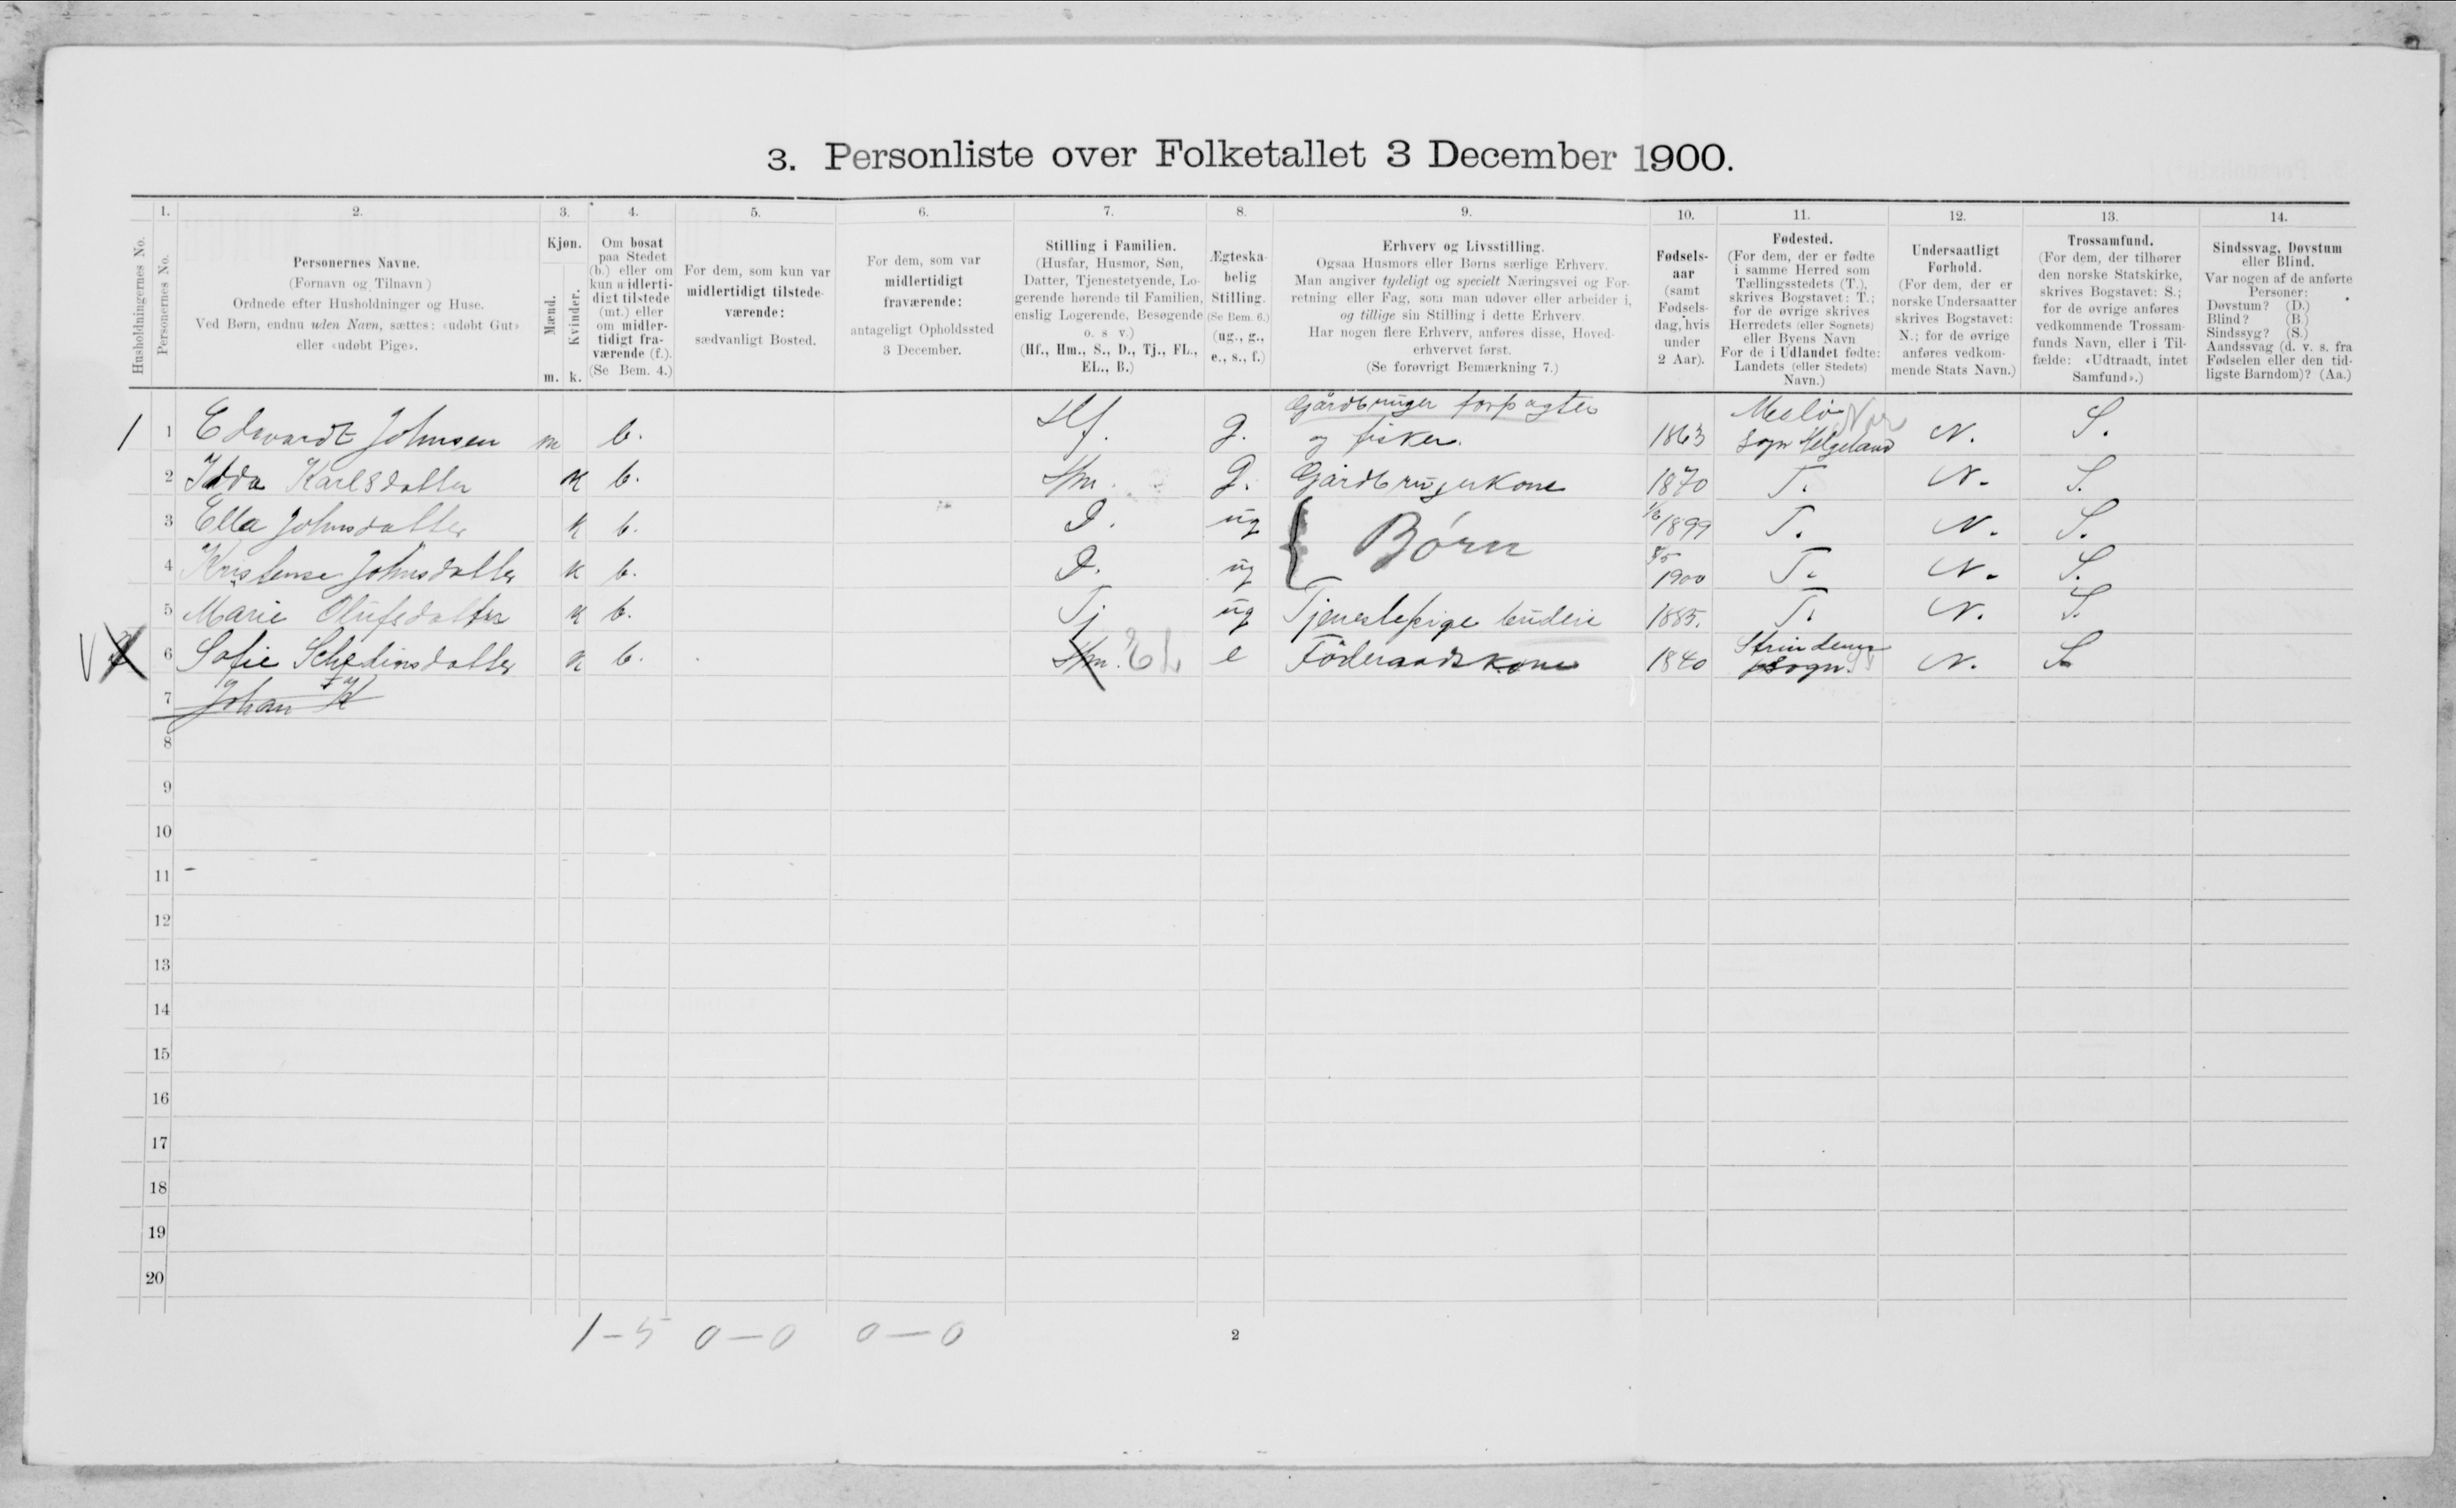 3. Personliste over Folketallet 3 December 1900.
1. 2. 3. 4. 5. 6. 7. 8. 9. 10. 11. 12. 13. 14.
Husholdningernes No.
Personernes No.
Personernes Navne.
(Fornavn og Tilnavn)
Ordnede efter Husholdninger og Huse.
Ved Børn, endnu uden Navn, sættes: «udøbt Gut»
eller «udøbt Pige».
Kjøn.
Mænd.
Kvinder.
m. k.
Om bosat
paa Stedet
(b.) eller om
kun midlerti-
digt tilstede
(mt.) eller
om midler-
tidigt fra-
værende (f.).
(Se Bem. 4.)
For dem, som kun var
midlertidigt tilstede-
værende:
sædvanligt Bosted.
For dem, som var
midlertidigt
fraværende:
antageligt Opholdssted
3 December.
Stilling i Familien.
(Husfar, Husmor, Søn,
Datter, Tjenestetyende, Lo-
gerende hørende til Familien,
enslig Logerende, Besøgende
o. s v.)
(Hf., Hm., S., D., Tj., FL.,
EL., B.)
Ægteska-
belig
Stilling.
(Se Bem. 6.)
(ug., g.,
e., s., f.)
Erhverv og Livsstilling.
Ogsaa Husmors eller Børns særlige Erhverv.
Man angiver tydeligt og specielt Næringsvei og For-
retning eller Fag, som man udøver eller arbeider i,
og tillige sin Stilling i dette Erhverv.
Har nogen flere Erhverv, anføres disse, Hoved-
erhvervet først.
(Se forøvrigt Bemærkning 7.)
Fødsels-
aar
(samt
Fødsels-
dag, hvis
under
2 Aar).
Fødested.
(For dem, der er fødte
i samme Herred som
Tællingsstedets (T.),
skrives Bogstavet: T.;
for de øvrige skrives
Herredets (eller Sognets)
eller Byens Navn
For de i Udlandet fødte:
Landets (eller Stedets)
Navn.)
Undersaatligt
Forhold.
(For dem, der er
norske Undersaatter
skrives Bogstavet:
N.; for de øvrige
anføres vedkom-
mende Stats Navn.)
Trossamfund.
(For dem, der tilhører
den norske Statskirke,
skrives Bogstavet: S.;
for de øvrige anføres
vedkommende Trossam-
funds Navn, eller i Til-
fælde: «Udtraadt, intet
Samfund».)
Sindssvag, Døvstum
eller Blind.
Var nogen af de anførte
Personer:
Døvstum? (D.)
Blind? (B.)
Sindssyg? (S.)
Aandssvag (d. v. s. fra
Fødselen eller den tid-
ligste Barndom)? (Aa.)
Gårdbruger forpagter
1 1 Edvardt Johnsen m b. Hf. g. og fisker. 1863 Sogn Helgeland N. S.
2 Idda Karlsdatter k b. Hm. g. Gårdbrugerkone 1870 T. N. S.
3 Ella Johnsdatter k b. D. ug Børn 1899 T. N. S.
4 Kristense Johnsdatter k b. D. ug 1900 T. N. S.
5 Marie Olufsdatter k b. Tj ug Tjenestepige budeie 1885. T. N. S.
6 Sofie k b. Hm. EL e Föderaadskone 1840 Strindens Sogn. N. S
7 Johan K
8
9
10
11
12
13
14
15
16
17
18
19
20
1-5 0-0 0-0
2